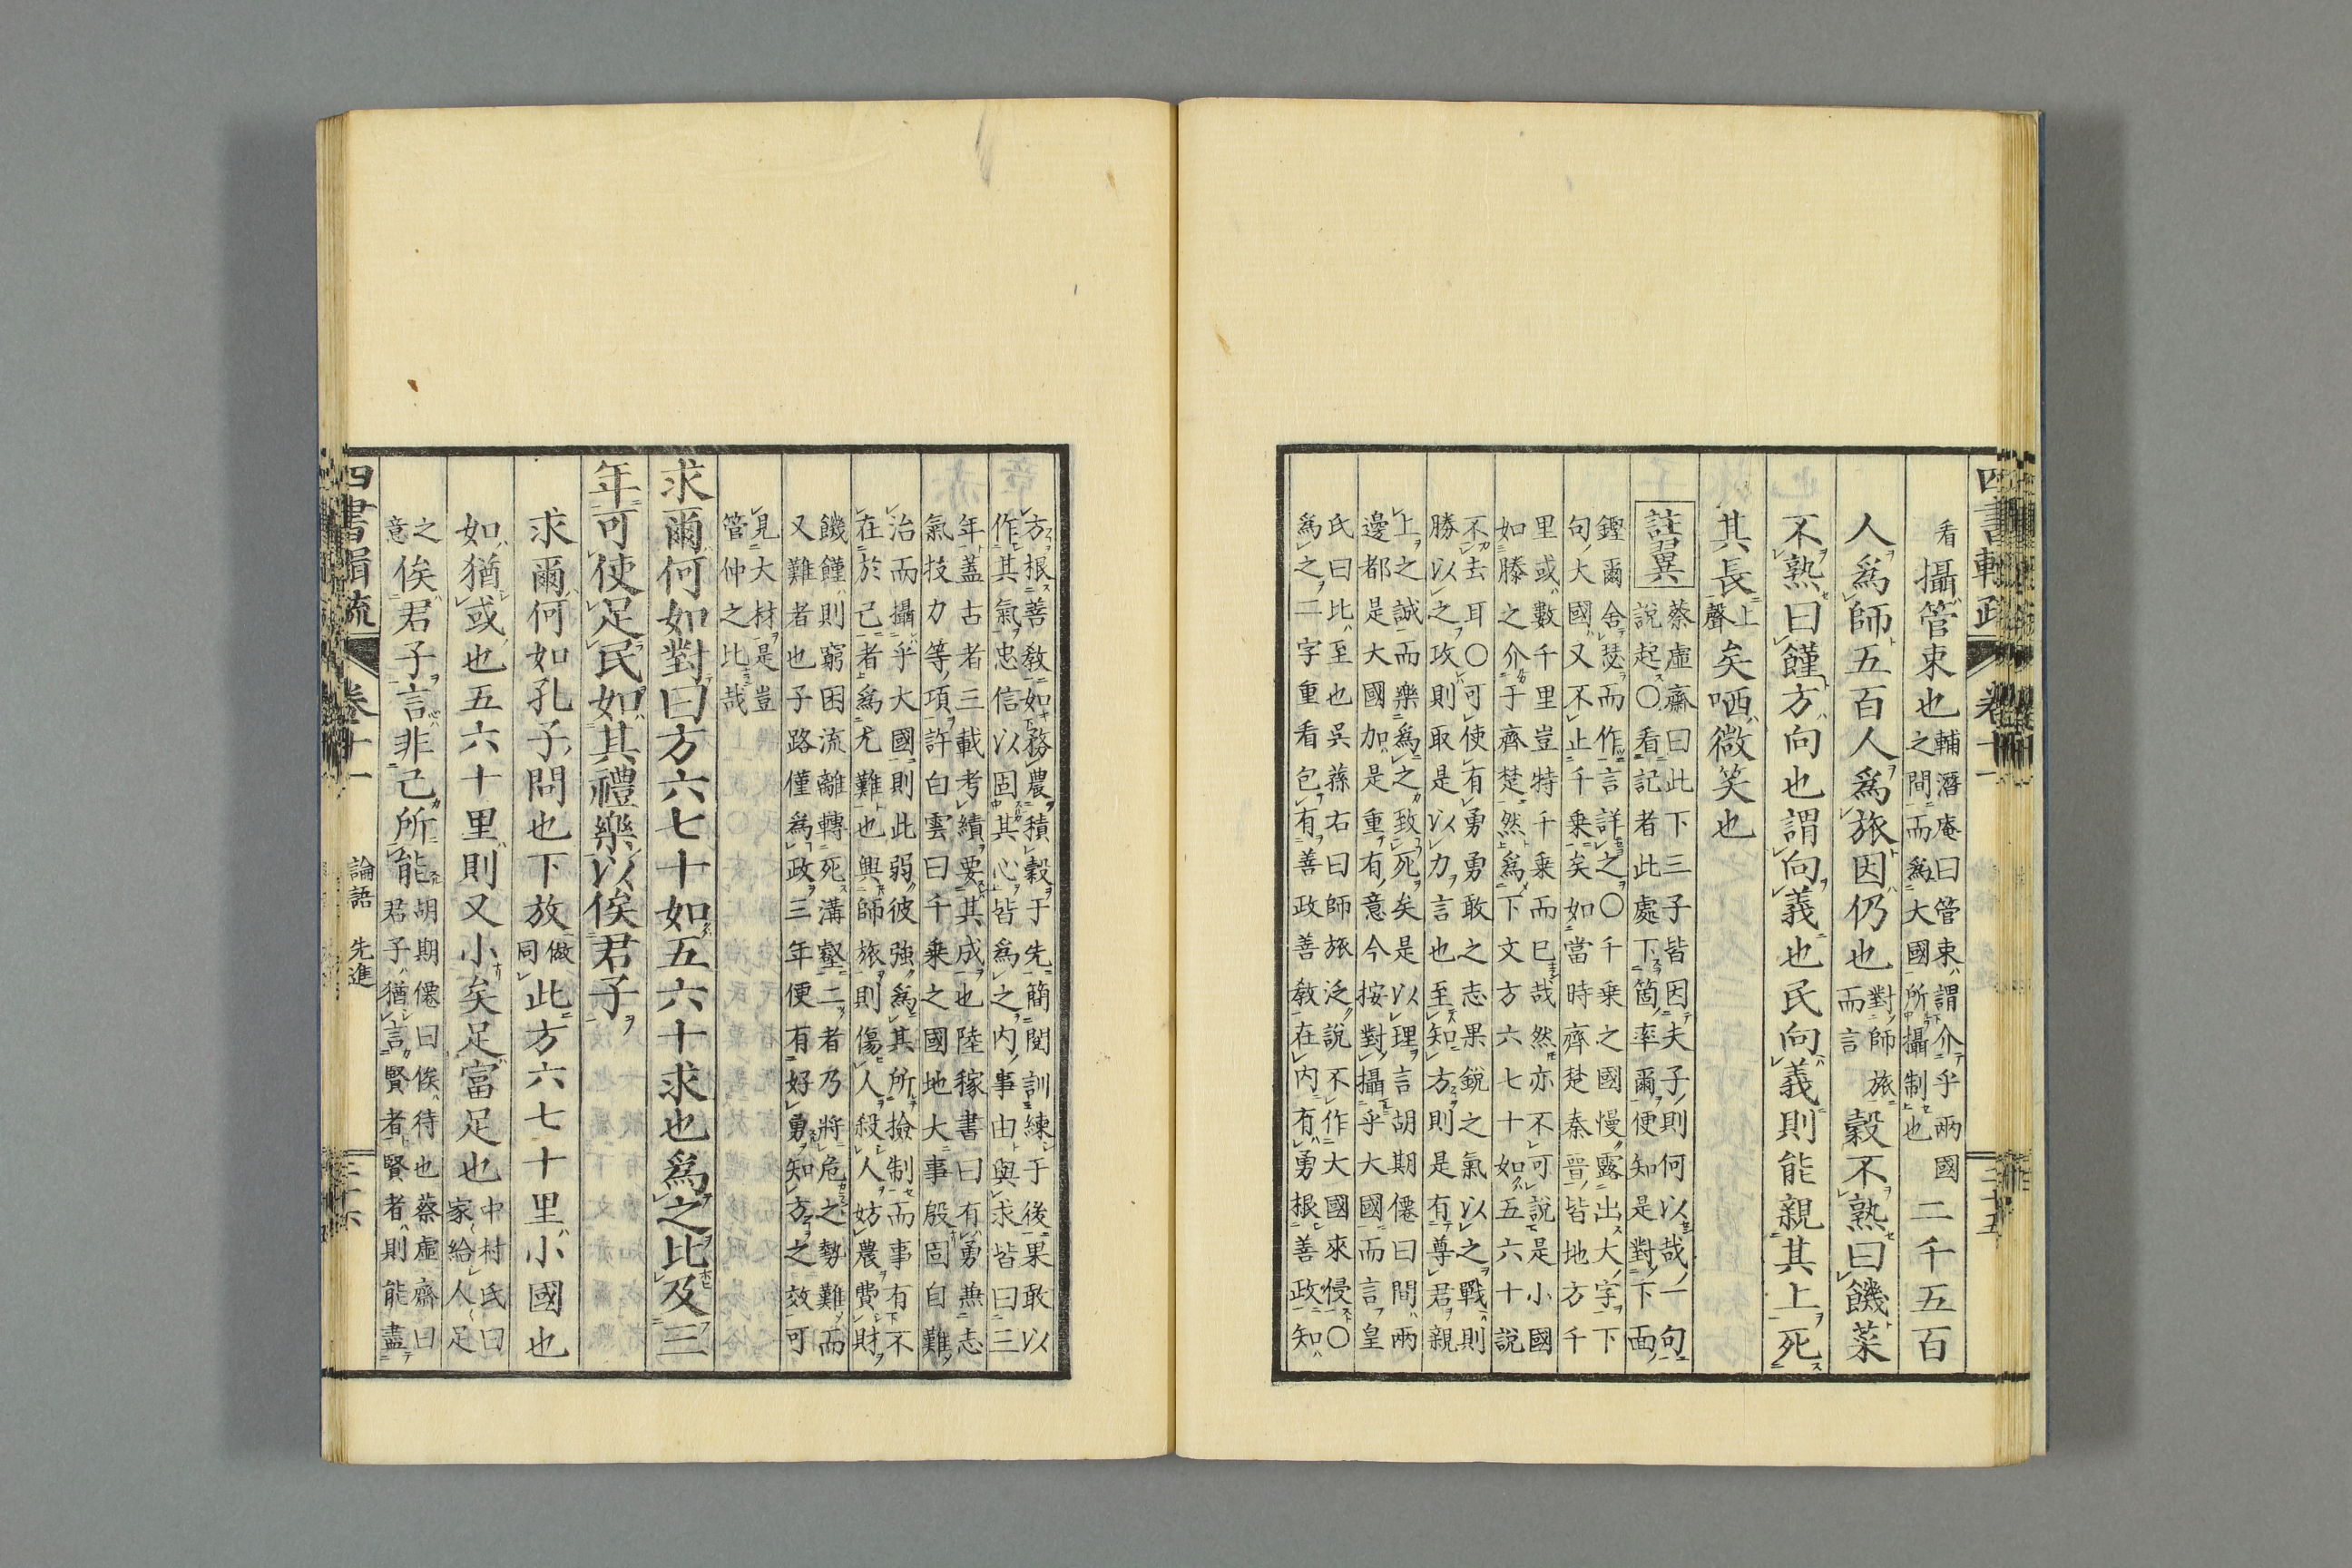 看攝管束也輔潛庵曰管束謂介乎兩國
之間而爲大國所攝制也二千五百
人爲師五百人爲旅因仍也對師旅
而言穀不熟曰饑菜
不熟曰饉方向也謂向義也民向義則能親其上死
其長上
聲矣哂微笑也
註翼
蔡虛齋曰此下三子皆因夫子則何以哉一句
說起〇看記者此處下箇率爾便知是對下面
鏗爾舍瑟而作言詳之〇千乘之國慢露出大字下
句大國又不止千乘矣如當時齊楚秦晉皆地方千
里或數千里豈特千乘而已哉然亦不可說是小國
如滕之介于齊楚然爲下文方六七十如五六十說
不去耳〇可使有勇勇敢之志果銳之氣以之戰則
勝以之攻則取是以力言也至知方則是有尊君親
上之誠而樂爲之致死矣是以理言胡期僊曰間兩
邊都是大國加是重有意今按對攝乎大國而言皇
氏曰比至也吳蓀右曰師旅泛說不作大國來侵〇
爲之二字重看包有善政善教在内有勇根善政知
方根善教如務農積穀于先簡閱訓練于後果敢以
作其氣忠信以固其心皆爲之内事由與求皆曰三
年蓋古者三載考績要其成也陸稼書曰有勇兼志
氣技力等項許白雲曰千乘之國地大事殷固自難
治而攝乎大國則此弱彼強爲其所撿制而事有不
在於己者爲尤難也興師旅則傷人殺人妨農費財
饑饉則窮困流離轉死溝壑二者乃將危之勢難而
又難者也子路僅爲政三年便有好勇知方之效可
見大材是豈
管仲之比哉
求爾何如對曰方六七十如五六十求也爲之比及三
年可使足民如其禮樂以俟君子
求爾何如孔子問也下放倣
同此方六七十里小國也
如猶或也五六十里則又小矣足富足也中村氏曰
家給人足
之
意俟君子言非己所能胡期僊曰俟待也蔡虛齋曰
君子猶言賢者賢者則能盡
四書輯疏
卷十一
論語 先進
三十六